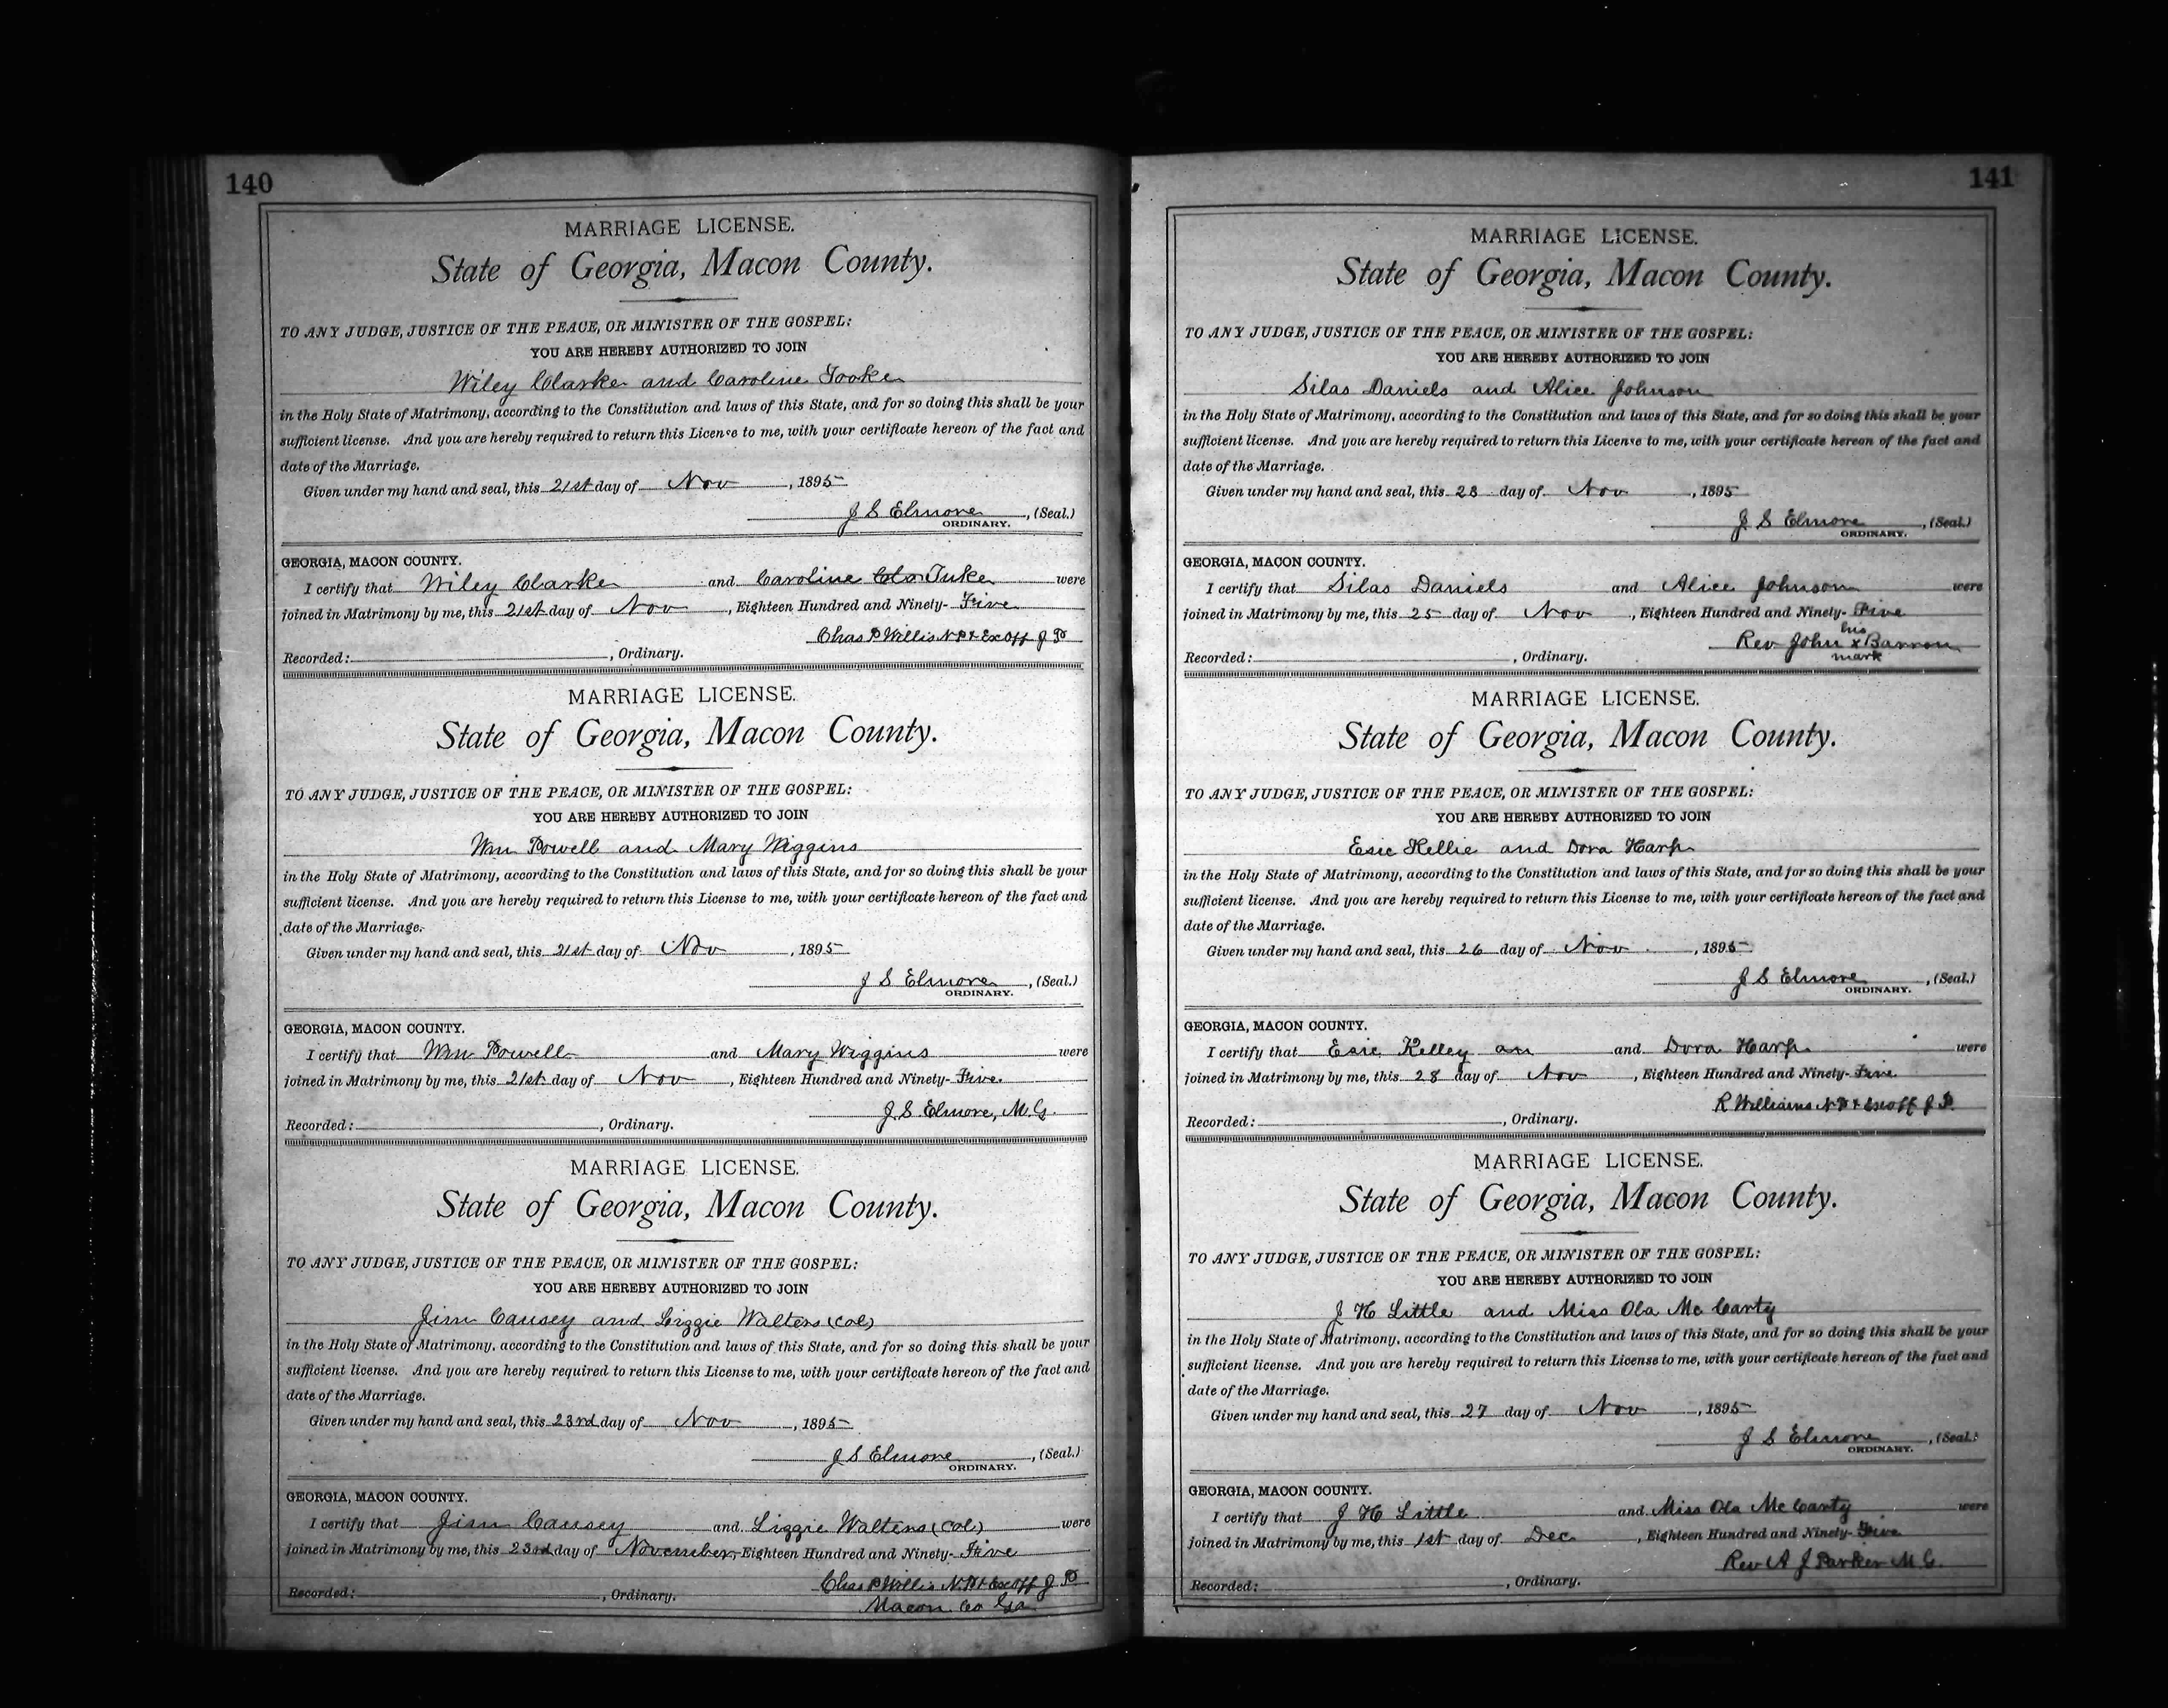 140
MARRIAGE LICENSE.
State of Georgia, Macon County.
TO ANY JUDGE, JUSTICE OF THE PEACE, OR MINISTER OF THE GOSPEL:
YOU ARE HEREBY AUTHORIZED TO JOIN
Wiley Clarke and Caroline Tooke
in the Holy State of Matrimony, according to the Constitution and laws of this State, and for so doing this shall be your
sufficient license. And you are hereby required to return this License to me, with your certificate hereon of the fact and
date of the Marriage.
Given under my hand and seal, this 21st day of Nov , 1895
J S Elmore , (Seal.)
ORDINARY.
GEORGIA, MACON COUNTY.
I certify that Wiley Clarke and Caroline Tuke were
joined in Matrimony by me, this 21st day of Nov , Eighteen Hundred and Ninety- Five
Chas P Willis N P & Ex Off J P
Recorded: , Ordinary.
MARRIAGE LICENSE.
State of Georgia, Macon County.
TO ANY JUDGE, JUSTICE OF THE PEACE, OR MINISTER OF THE GOSPEL:
YOU ARE HEREBY AUTHORIZED TO JOIN
Wm Powell and Mary Wiggins
in the Holy State of Matrimony, according to the Constitution and laws of this State, and for so doing this shall be your
sufficient license. And you are hereby required to return this License to me, with your certificate hereon of the fact and
date of the Marriage.
Given under my hand and seal, this 21st day of Nov , 1895
J S Elmore , (Seal.)
ORDINARY.
GEORGIA, MACON COUNTY.
I certify that Wm Powell and Mary Wiggins were
joined in Matrimony by me, this 21st day of Nov , Eighteen Hundred and Ninety- Five.
J. S Elmore, M. G.
Recorded: , Ordinary.
MARRIAGE LICENSE.
State of Georgia, Macon County.
TO ANY JUDGE, JUSTICE OF THE PEACE, OR MINISTER OF THE GOSPEL:
YOU ARE HEREBY AUTHORIZED TO JOIN
Jim Causey and Lizzie Walters (col)
in the Holy State of Matrimony, according to the Constitution and laws of this State, and for so doing this shall be your
sufficient license. And you are hereby required to return this License to me, with your certificate hereon of the fact and
date of the Marriage.
Given under my hand and seal, this 23rd day of Nov , 1895
J S Elmore , (Seal.)
ORDINARY.
GEORGIA, MACON COUNTY.
I certify that Jim Causey and Lizzie Walters (col) were
joined in Matrimony by me, this 23rd day of November, Eighteen Hundred and Ninety- Five
Chas P Willis N. P & Ex Off J P
Recorded: , Ordinary.
Macon Co Ga
141
MARRIAGE LICENSE.
State of Georgia, Macon County.
TO ANY JUDGE, JUSTICE OF THE PEACE, OR MINISTER OF THE GOSPEL:
YOU ARE HEREBY AUTHORIZED TO JOIN
Silas Daniels and Alice Johnson
in the Holy State of Matrimony, according to the Constitution and laws of this State, and for so doing this shall be your
sufficient license. And you are hereby required to return this License to me, with your certificate hereon of the fact and
date of the Marriage.
Given under my hand and seal, this 23 day of Nov , 1895
J S Elmore , (Seal.)
ORDINARY.
GEORGIA, MACON COUNTY.
I certify that Silas Daniels and Alice Johnson were
joined in Matrimony by me, this 25 day of Nov , Eighteen Hundred and Ninety- Five
his
Rev John x Barron
mark
Recorded: , Ordinary.
MARRIAGE LICENSE.
State of Georgia, Macon County.
TO ANY JUDGE, JUSTICE OF THE PEACE, OR MINISTER OF THE GOSPEL:
YOU ARE HEREBY AUTHORIZED TO JOIN
Esic Kellie and Dora Harp
in the Holy State of Matrimony, according to the Constitution and laws of this State, and for so doing this shall be your
sufficient license. And you are hereby required to return this License to me, with your certificate hereon of the fact and
date of the Marriage.
Given under my hand and seal, this 26 day of Nov , 1895
J S Elmore , (Seal.)
ORDINARY.
GEORGIA, MACON COUNTY.
I certify that Esic Kelley an and Dora Harp were
joined in Matrimony by me, this 28 day of Nov , Eighteen Hundred and Ninety- Five
R Williams N P & Ex off J P.
Recorded: , Ordinary.
MARRIAGE LICENSE.
State of Georgia, Macon County.
TO ANY JUDGE, JUSTICE OF THE PEACE, OR MINISTER OF THE GOSPEL:
YOU ARE HEREBY AUTHORIZED TO JOIN
J H Little and Miss Ola Mc Carty
in the Holy State of Matrimony, according to the Constitution and laws of this State, and for so doing this shall be your
sufficient license. And you are hereby required to return this License to me, with your certificate hereon of the fact and
date of the Marriage.
Given under my hand and seal, this 27 day of Nov , 1895
J S Elmore , (Seal.)
ORDINARY.
GEORGIA, MACON COUNTY.
I certify that J H Little and Miss Ola Mc Carty were
joined in Matrimony by me, this 1st day of Dec , Eighteen Hundred and Ninety- Five
Rev A J Parker M. G.
Recorded: , Ordinary.